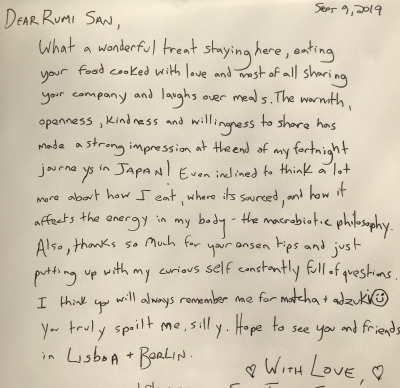 Sept 9, 2019
DEAR RUMI SAN,
What a wonderful treat staying here, eating
your food cooked with love and most of all sharing
your company and laughs over meals. The warmth,
openness, kindness and willingness to share has
made a strong impression at the end of my fortnight
journeys in JAPAN! Even inclined to think a lot
more about how I eat, where its sourced, and how it
affects the energy in my body - the macrobiotic philosophy.
Also, thanks so much for your onsen tips and just
putting up with my curious self constantly full of questions.
I think you will always remember me for matcha + adzuki ☺
You truly spoilt me, silly. Hope to see you and friends
in LISBOA + BERLIN.
♡ WITH LOVE, ♡